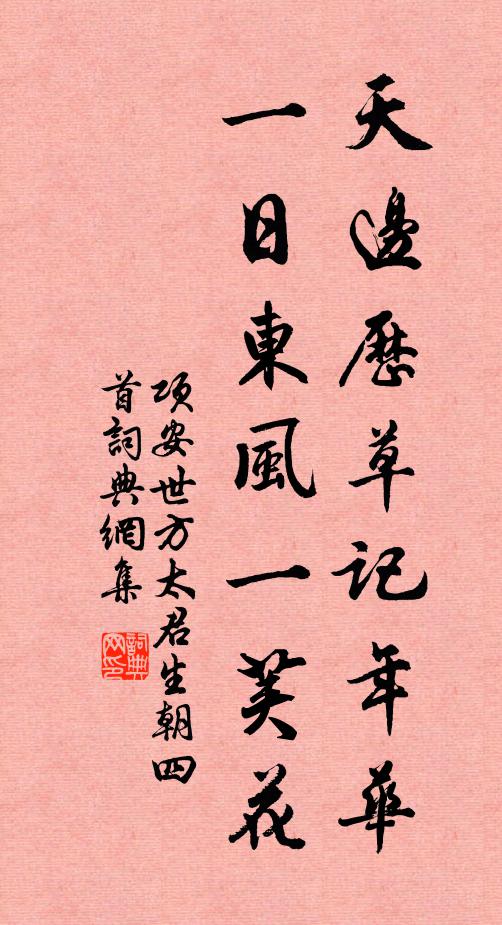 天邊歷草記年華
一日東風一荚花
項安世方太君生朝四
首詞典網集
詞典
网印